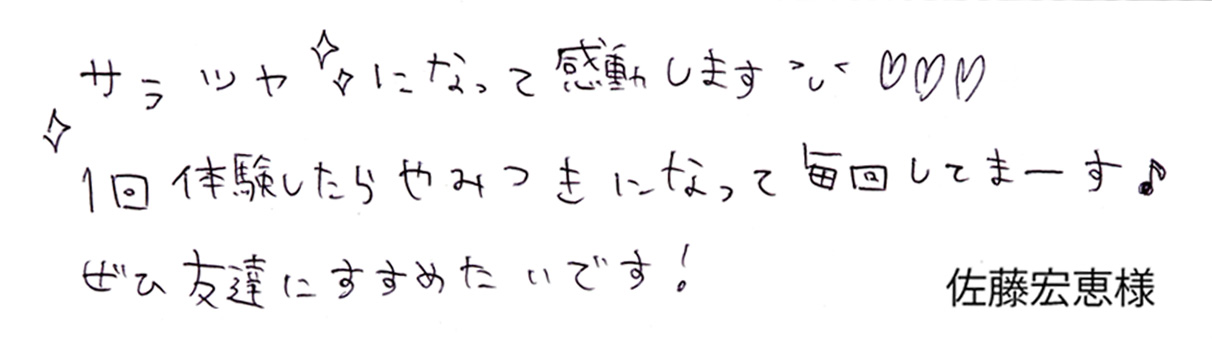 サラツヤになって感動します♡♡♡
1回体験したらやみつきになって毎回してまーす♪
ぜひ友達にすすめたいです!
佐藤宏恵様